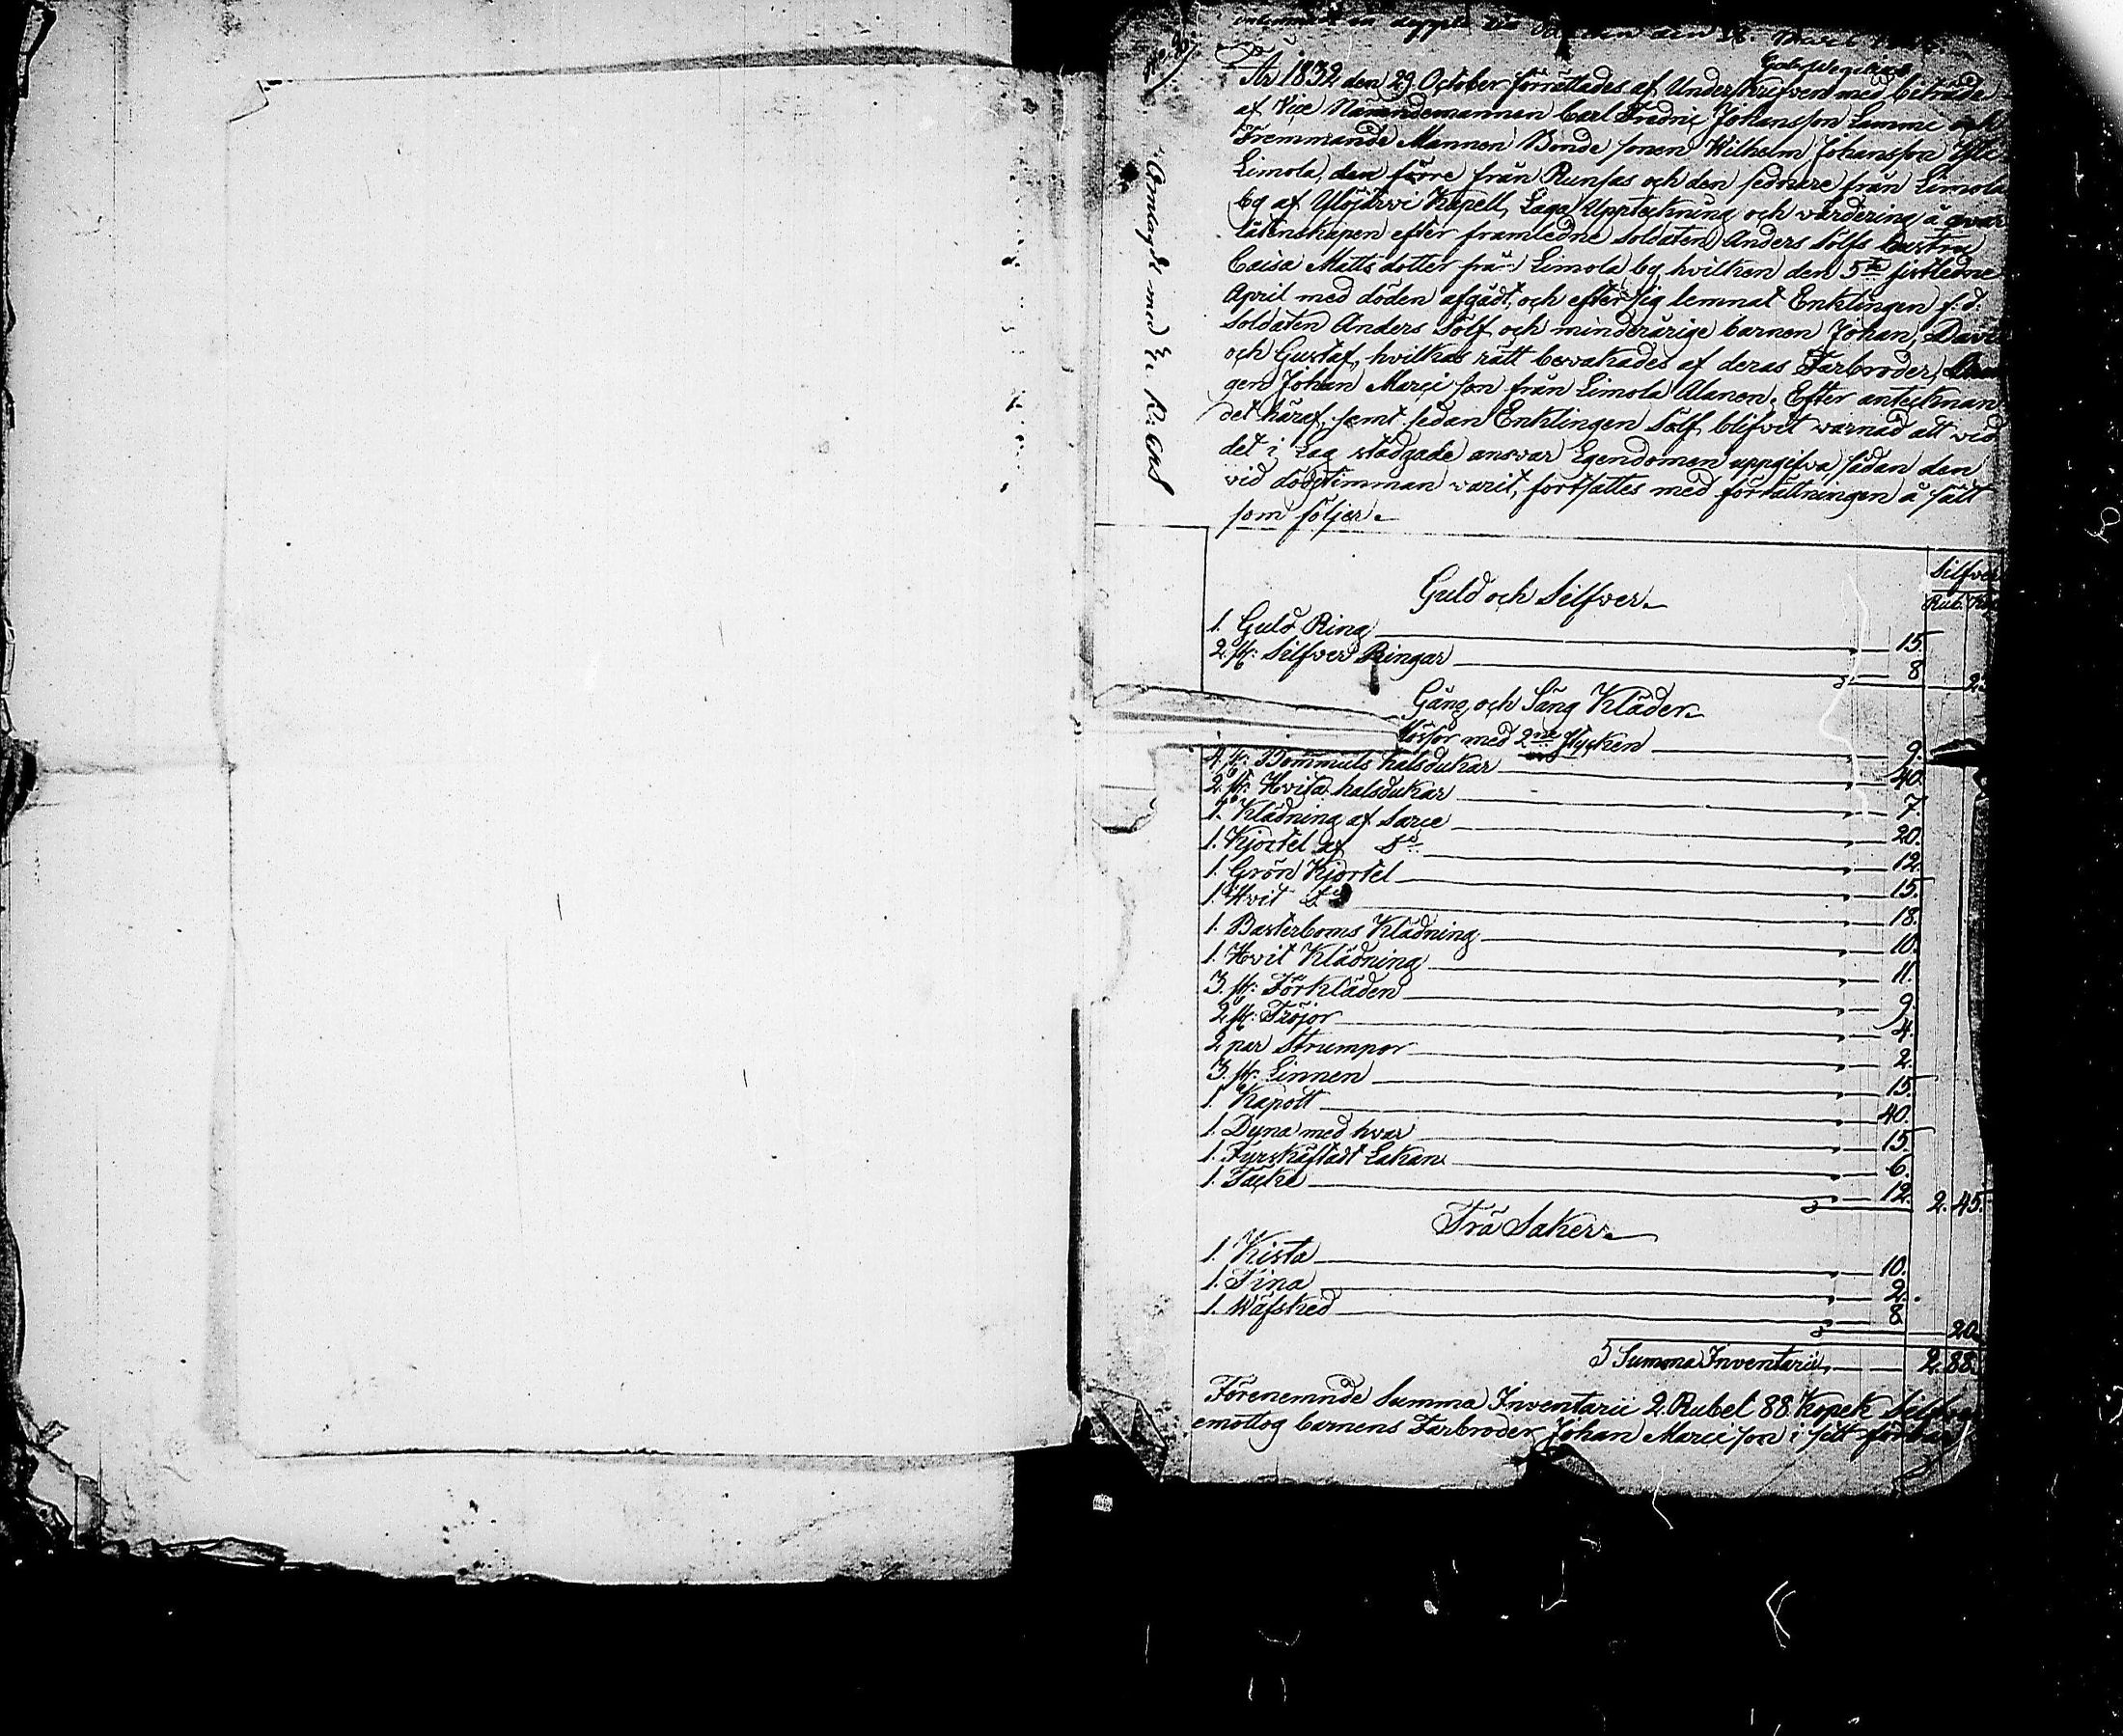 År 1832 den 29 October förrättades af Underskrifven med beträde
af Vice Nämndemannen Carl Fredric Johansson Lammi och
Fremmande Mannen Bonde sonen Wilhelm Johansson Yli
Limola, den förre från Runsas och den sednare från Limola
by af Ylöjärvi Kapell, Laga Uppteckning och värdering å qvar
låtenskapen efter framledne Soldaten Anders Sölfs hustru
Caisa Mattsdotter från Limola by, hvilken den 5te sistledne
April med döden afgådt, och efter sig lemnat Enklingen f. d.
Soldaten Anders Sölf och minderårige barnen Johan, David
och Gustaf, hvilkas rätt bevakades af deras Farbroder,
gen Johan Marci son från Limola Alanen. Efter antecknan
det häraf, samt sedan Enklingen Sölf blifvit varnad att vid
det i Lag stadgade ansvar Egendomen uppgifva sådan den
vid dödstimman varit, fortsattes med förrättningen å sätt
som följer.
Silfver
Rub. Kop
Guld och Silfver.
1. Guld Ring 15.
2. st: Silfver Ringar 8 23
Gång och Säng Kläder
Mössor med 2ne stycken 9.
4. st: Bommuls halsdukar 40.
2. st: Hvita halsdukar 7.
1. Klädning af Sarce 20.
1. Kjortel af do 12
1. Grön Kjortel 15.
1. Hvit do 18.
1. Basterboms Klädning 10.
1. Hvit Klädning 11.
3. st: Förkläden 9.
2 st: Tröjor 4.
2 par Strumpor 2.
3. st: Linnen 15.
1. Kapott 40.
1. Dyna med hvar 15.
1. Fyrskäftadt Lakan 6.
1. Täcke 12. 2. 45.
Trä Saker.
1. Kista 10.
1. Tina 2.
1. Wäfsked 8 20
Summa Inventarii 2. 88.
Förenemnde Summa Inventarii 2. Rubel 88. Kopek Silfver
emottog barnens Farbroder Johan Marci son i sitt förvar
Anslagit med En R: Cos